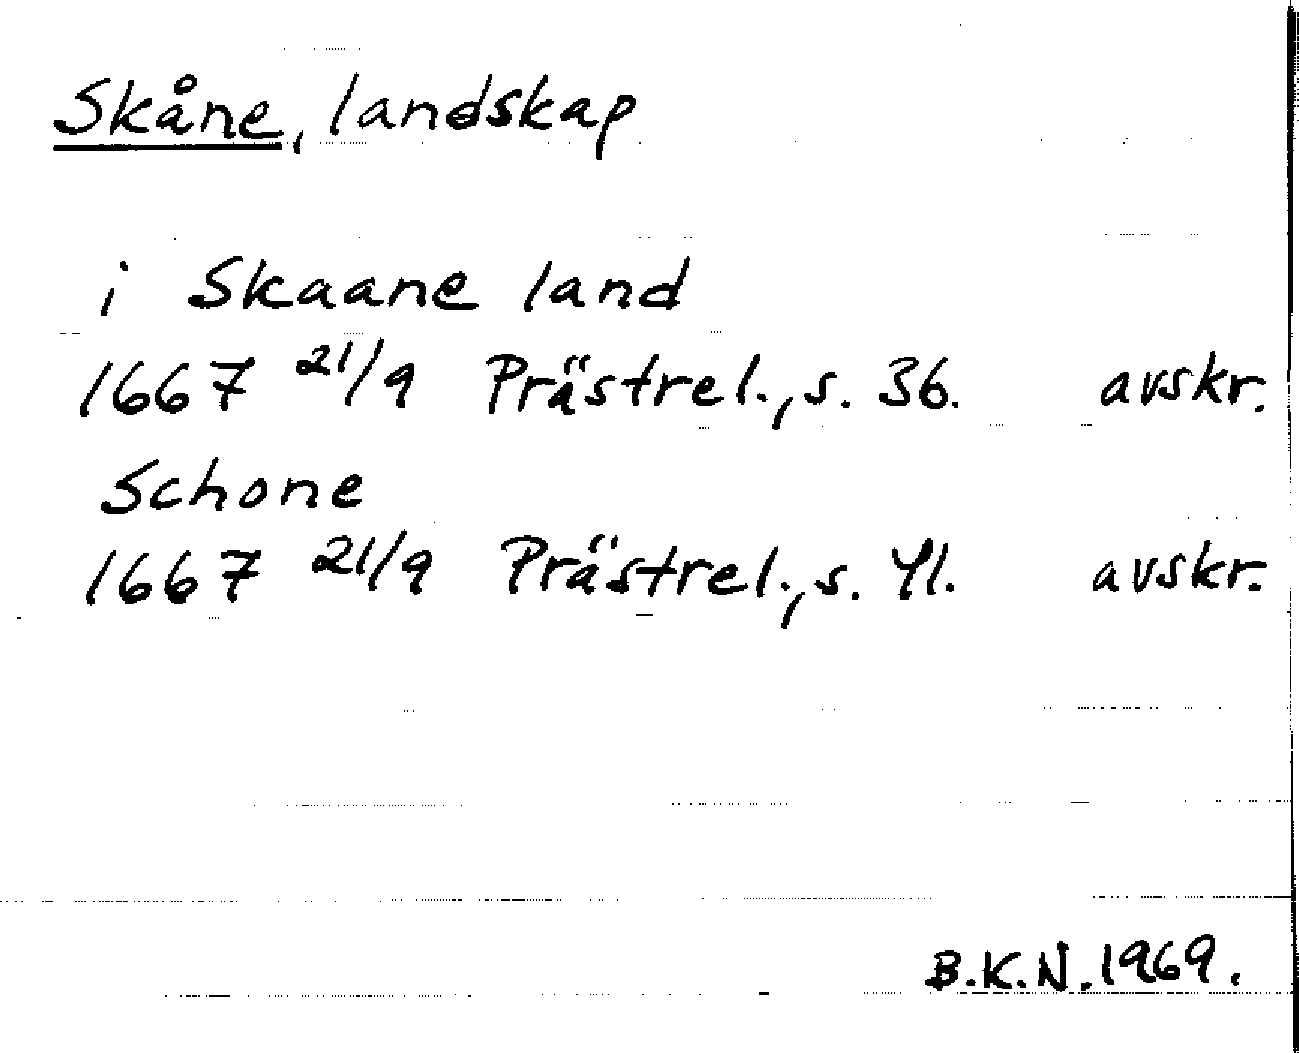 Skåne, landskap
i Skaane land
1667 21/9 Prästrel., s. 36. avskr.
Schone
1667 21/9 Prästrel., s. 41. avskr.
B.K.N. 1969.